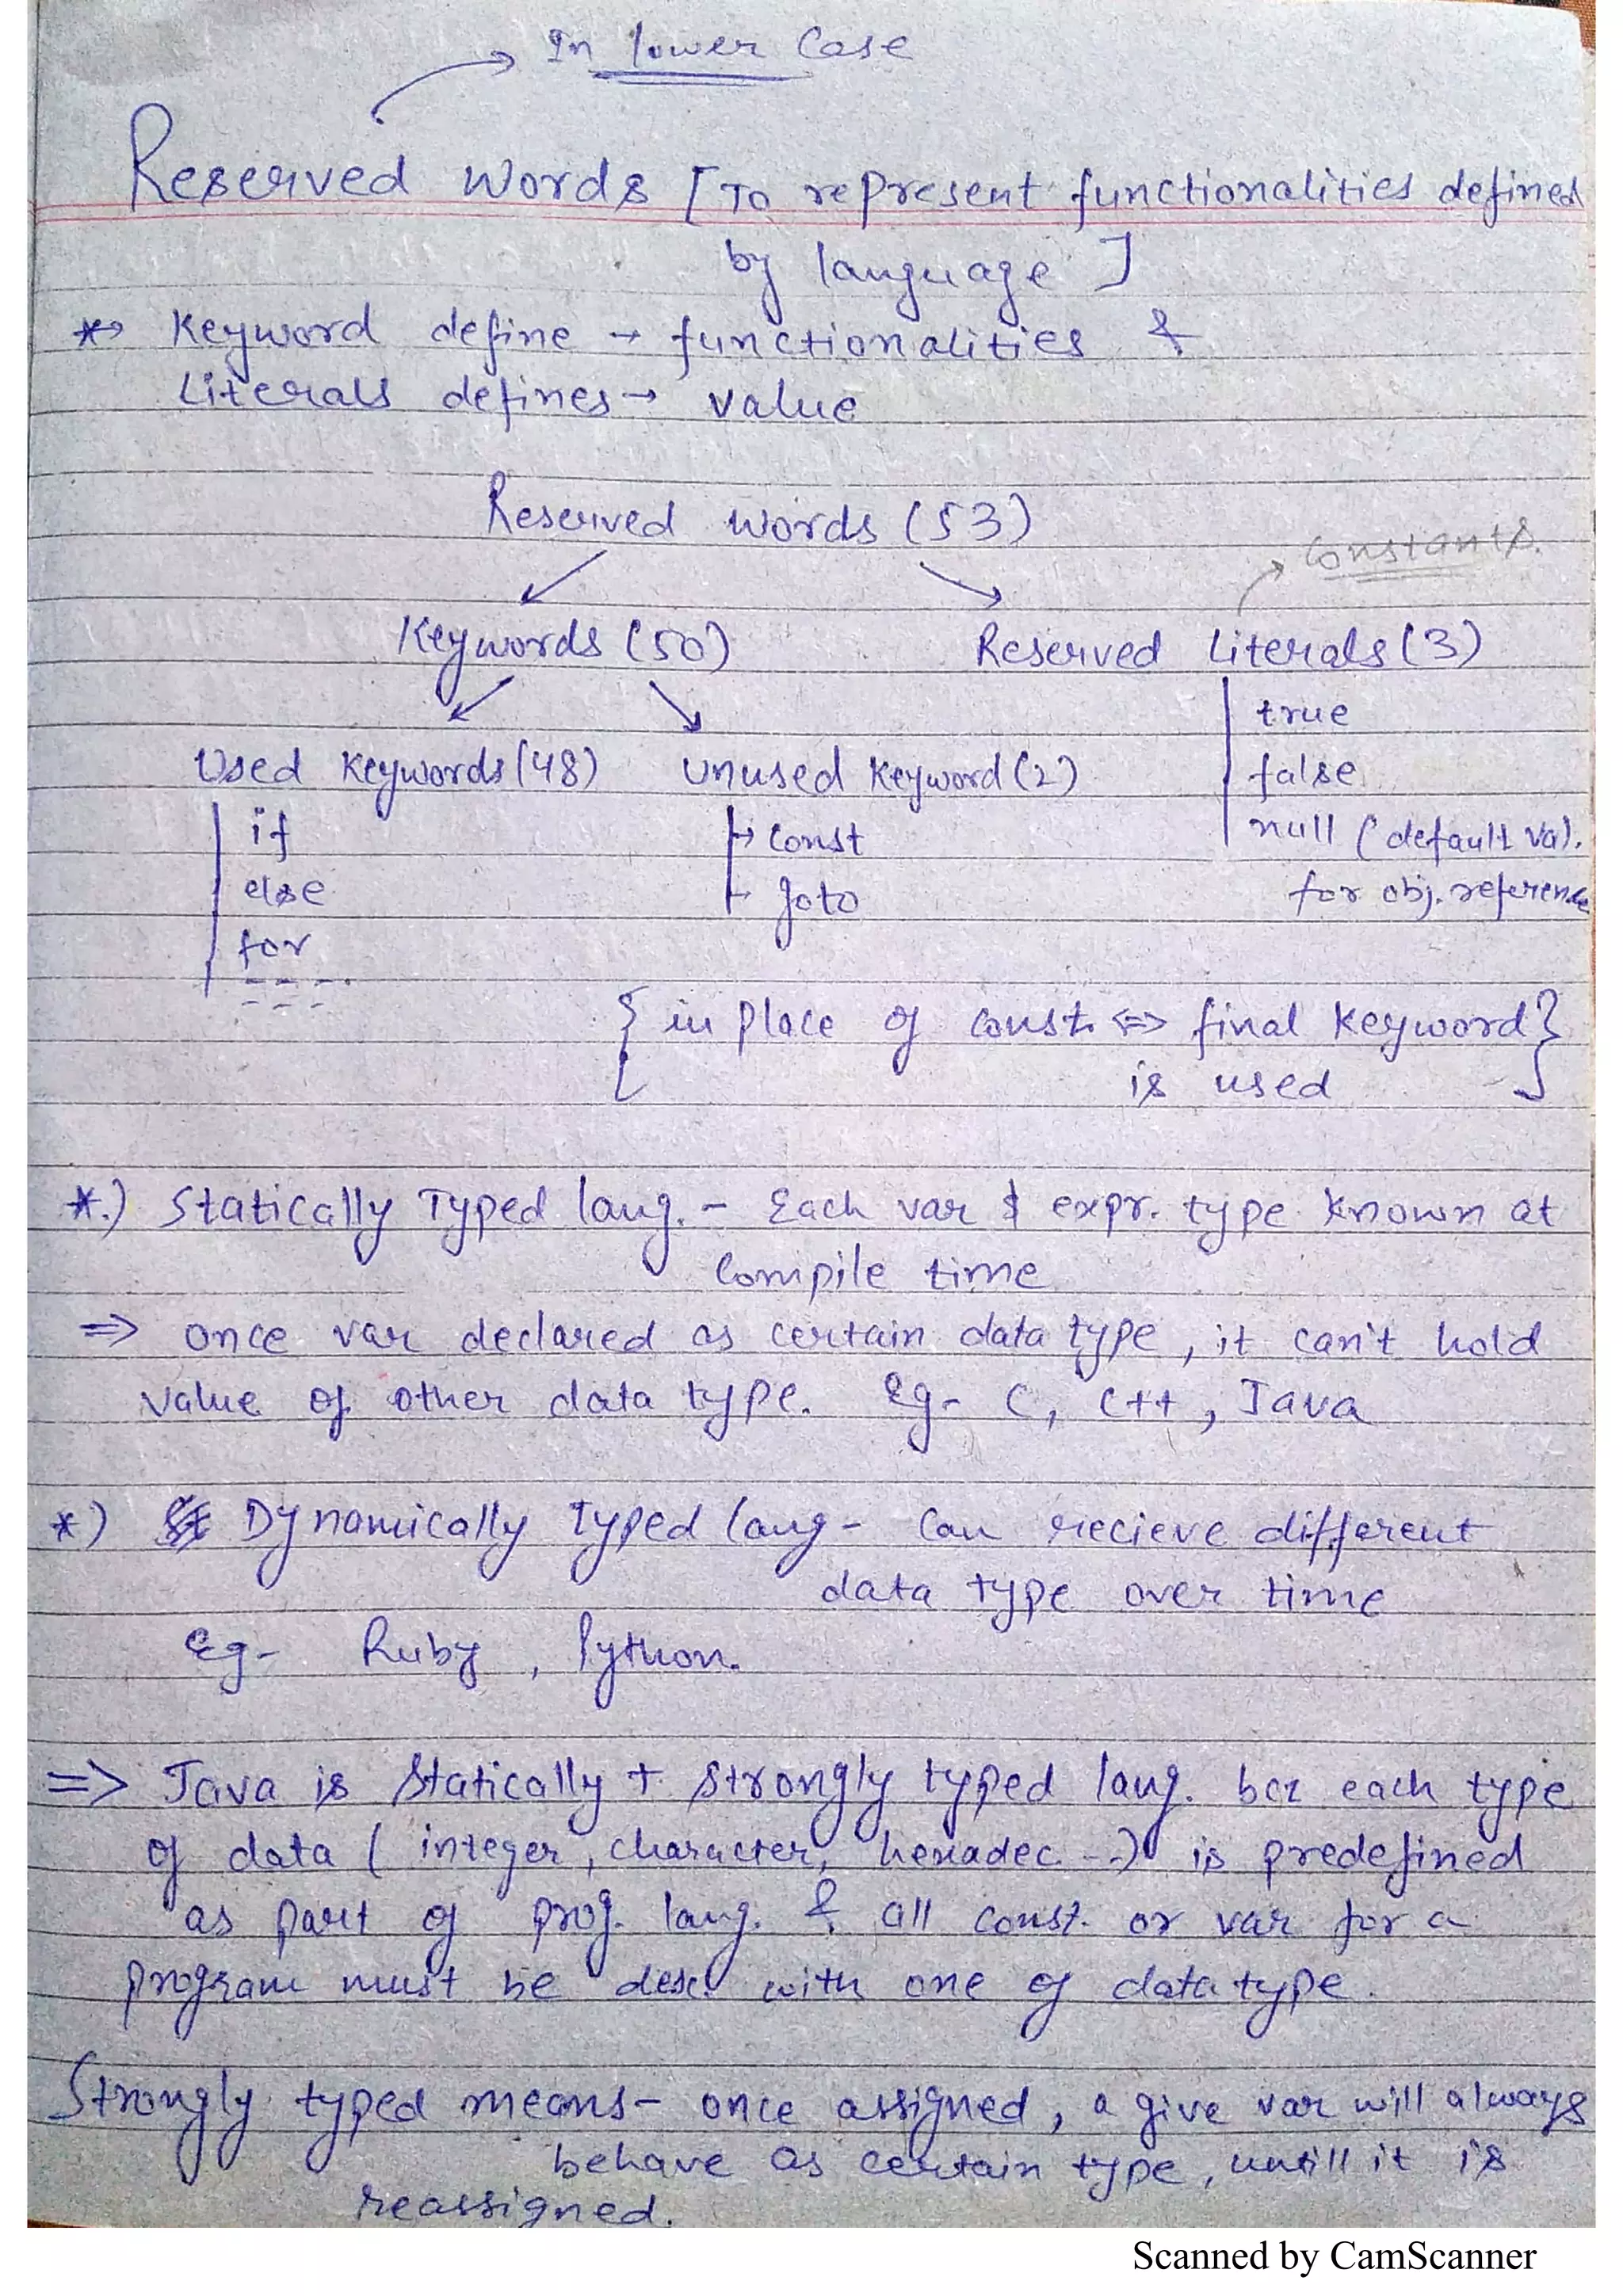 In lower Case
Reserved words [To represent functionalities defined
by language]
* Keyword define → functionalities &
Literals defines → value
Reserved words (53)
Constants.
Keywords (50) Reserved Literals (3)
true
Used Keywords (48) Unused Keyword (2) false
if const null (default val.
else goto for obj. reference
for
{ in place of const. <=> final keyword }
is used
*.) Statically Typed lang. - Each var & expr. type known at
Compile time
=> once var declared as certain data type, it can't hold
value of other data type. Eg- C, C++, Java
*) Dynamically Typed lang - Can recieve different
data type over time
Eg- Ruby, Python.
=> Java is Statically + strongly typed lang. bcz each type
of data ( integer, character, hexadec --) is predefined
as part of prog. lang. & all const. or var for a
program must be desc. with one of data type.
Strongly typed means - once assigned, a give var will always
behave as certain type, untill it is
reassigned.
Scanned by CamScanner